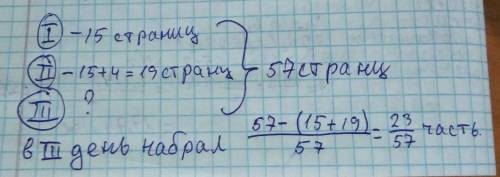 I - 15 страниц
II - 15+4 = 19 странц } 57 странц
III ?
в III день набрал (57-(15+19))/57 = 23/57 часть.